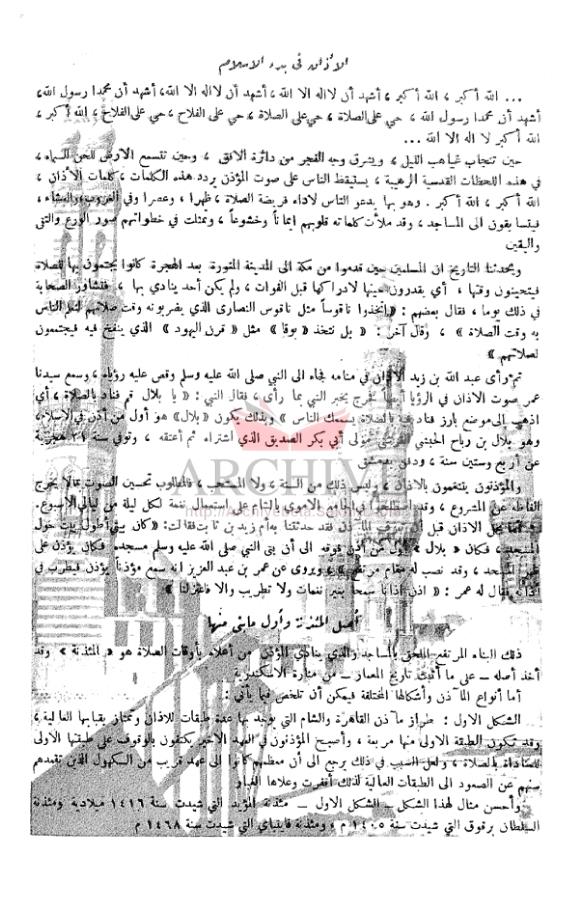 الأذان في بدء الاسلام
... الله أكبر ، الله أكبر ، أشهد أن لااله الا الله ، أشهد أن لااله الا الله، أشهد أن محمدا رسول الله،
أشهد أن محمدا رسول الله ، حي على الصلاة ، حي على الصلاة ، حي على الفلاح ، حي على الفلاح ، الله أكبر ،
الله أكبر لا اله الا الله ...
حين تنجاب غياهب الليل ، ويشرق وجه الفجر من دائرة الافق ، وحين تتسمع الارض للحن السماء ،
في هذه اللحظات القدسية الرهيبة ، يستيقظ الناس على صوت المؤذن يردد هذه الكلمات ، كلمات الأذان ،
الله أكبر ، الله أكبر . وهو بها يدعو الناس لاداء فريضة الصلاة ، ظهرا ، وعصرا وفي الغروب والعشاء ،
فيتسابقون الى المساجد ، وقد ملأت كلماته قلوبهم ايمانا وخشوعا ، وتمثلت في خطواتهم صور الورع والتقى
واليقين
ويحدثنا التاريخ ان المسلمين حين قدموا من مكة الى المدينة المنورة بعد الهجرة كانوا يجتمعون بها للصلاة
فيتحينون وقتها ، أي يقدرون حينها لادراكها قبل الفوات ، ولم يكن أحد ينادي بها ، فتشاور الصحابة
في ذلك يوما ، فقال بعضهم : « اتخذوا ناقوساً مثل ناقوس النصارى الذي يضربونه وقت صلاتهم لنعلم الناس
به وقت الصلاة » ، وقال آخر : « بل نتخذ « بوقا » مثل « قرن اليهود » الذي ينفخ فيه فيجتمعون
لصلاتهم »
ثم رأى عبد الله بن زيد الاذان في منامه فجاء الى النبي صلى الله عليه وسلم وقص عليه رؤياه ، وسمع سيدنا
عمر صوت الاذان في الرؤيا أيضا فخرج يخبر النبي بما رأى ، فقال النبي : « يا بلال قم فناد بالصلاة ، أي
اذهب الى موضع بارز فناد فيه بالصلاة يسمعك الناس » وبذلك يكون «بلال» هو أول من أذن في الاسلام،
وهو بلال بن رباح الحبشي القرشي مولى أبي بكر الصديق الذي اشتراه ثم أعتقه ، وتوفي سنة ٢١ هجرية
عن أربع وستين سنة ، ودفن بدمشق
والمؤذنون يتنغمون بالاذان ، وليس ذلك من السنة ، ولا المستحب ، فالمطلوب تحسين الصوت بما لا يخرج
الفاظه عن المشروع ، وقد اصطلحوا في الجامع الاموي بالشام على استعمال نغمة لكل ليلة من ليالي الاسبوع.
الاذان قبل أن تعرف المآذن فقد حدثتنا به أم زيد بن ثابت فقالت: «كان بيتي أطول بيت حول
المسجد ، فكان « بلال » يؤذن من فوقه الى أن بنى النبي صلى الله عليه وسلم مسجده. فكان يؤذن على
ظهر المسجد ، وقد نصب له مقام مرتفع » ، ويروى عن عمر بن عبد العزيز انه سمع مؤذناً يؤذن فيطرب في
اذانه فقال له عمر : « اذن أذانا سمحا بغير نغمات ولا تطريب والا فاعتزلنا »
أصل المئذنة وأول ما بني منها
ذلك البناء المرتفع الملحق بالمساجد والذي ينادي المؤذن من أعلاه بأوقات الصلاة هو « المئذنة » وقد
أخذ أصله ــ على ما أثبت تاريخ المعمار ــ من منارة الاسكندرية
أما أنواع المآذن وأشكالها المختلفة فيمكن أن تلخص فيما يأتي :
الشكل الاول : طراز مآذن القاهرة والشام التي يوجد بها عدة طبقات للاذان وتمتاز بقبابها العالية ،
وقد تكون الطبقة الاولى منها مربعة ، وأصبح المؤذنون في العهد الاخير يكتفون بالوقوف على طبقتها الاولى
للمناداة بالصلاة ، ولعل السبب في ذلك يرجع الى أن معظمهم كانوا الى عهد قريب من الكهول الذين تقعدهم
سنهم عن الصعود الى الطبقات العالية لذلك أقفرت وعلاها الغبار
وأحسن مثال لهذا الشكل ــ الشكل الاول ــ مئذنة المؤيد التي شيدت سنة ١٤١٦ ميلادية ومئذنة
السلطان برقوق التي شيدت سنة ١٤٠٥ م ، ومئذنة قايتباي التي شيدت سنة ١٤٦٨ م
ARCHIVE